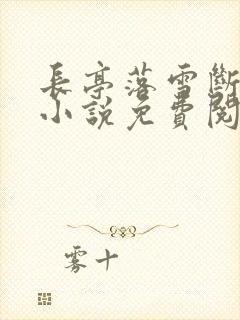 長亭落雪斷
小說免費閱
雾十